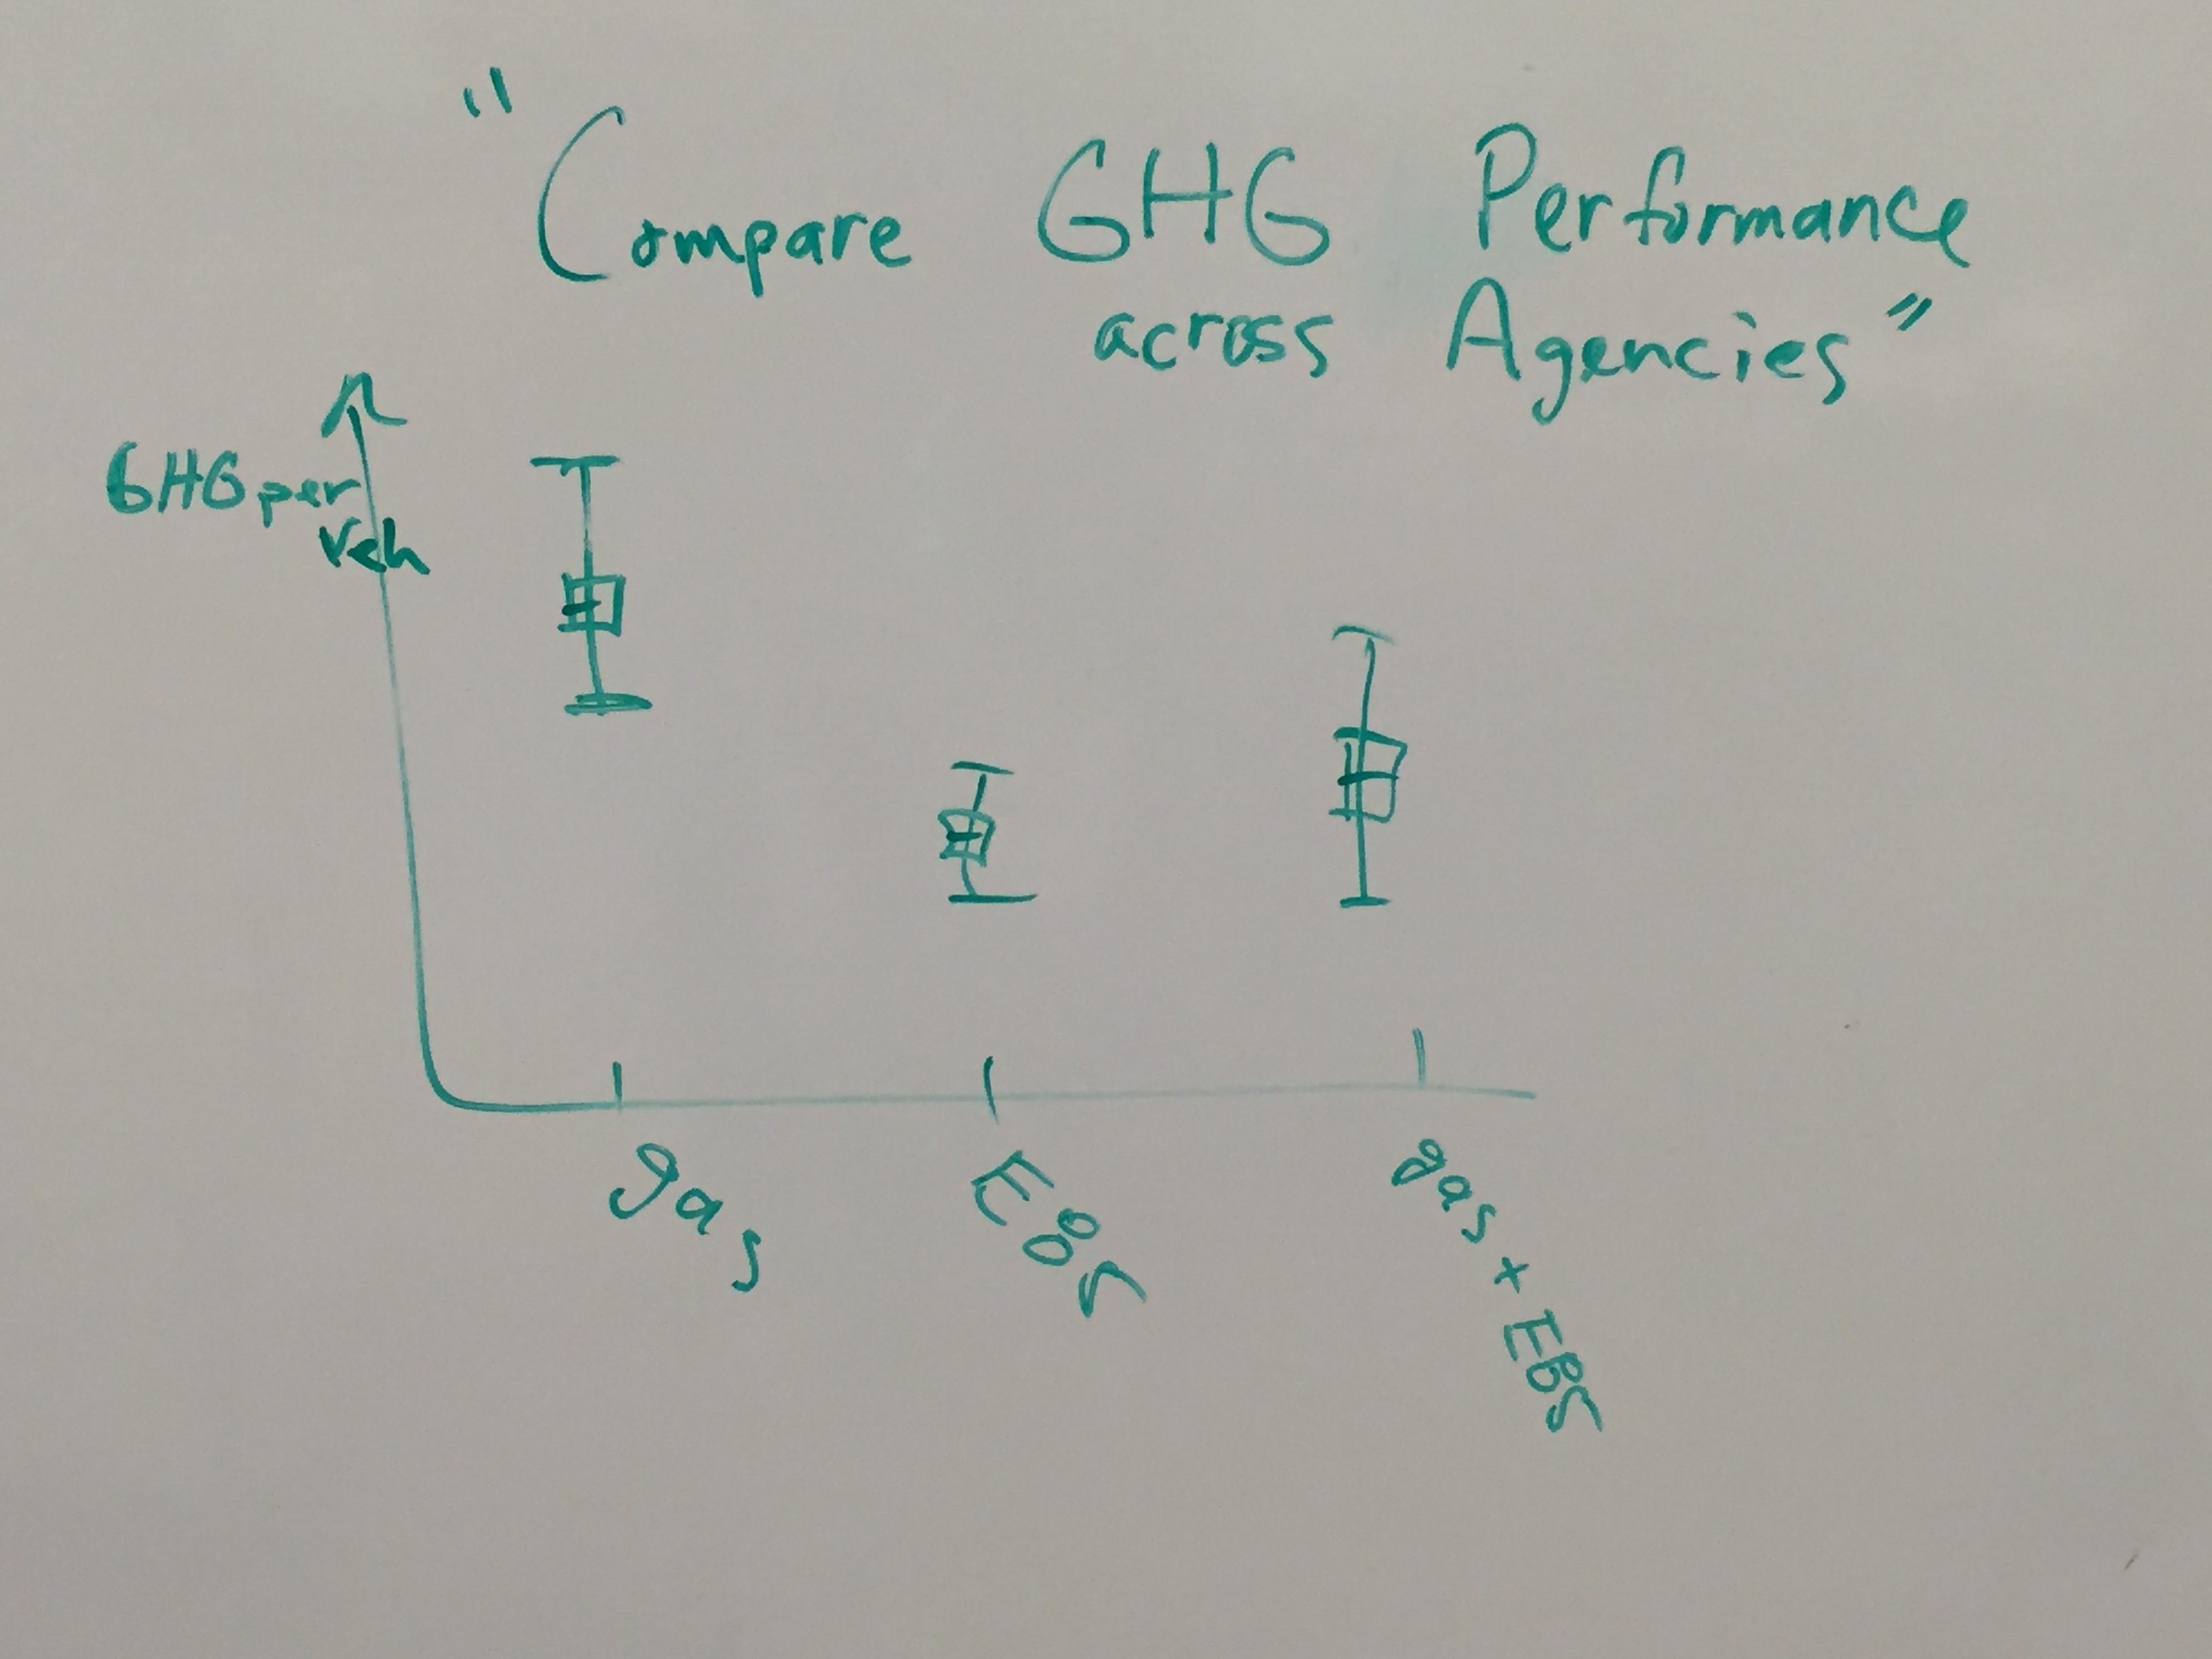 "Compare GHG Performance
across Agencies"
GHG per
Veh
gas
E85
gas + E85